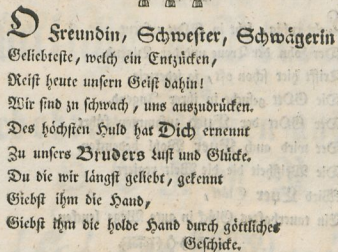 O Freundin, Schwester, Schwägerin
Geliebteste, welch ein Entzücken,
Reißt heute unsern Geist dahin!
Wir sind zu schwach, uns auszudrücken.
Des höchsten Huld hat Dich ernennt
Zu unsers Bruders Lust und Glücke.
Du die wir längst geliebt, gekennt
Giebst ihm die Hand,
Giebst ihm die holde Hand durch göttliches
Geschicke.